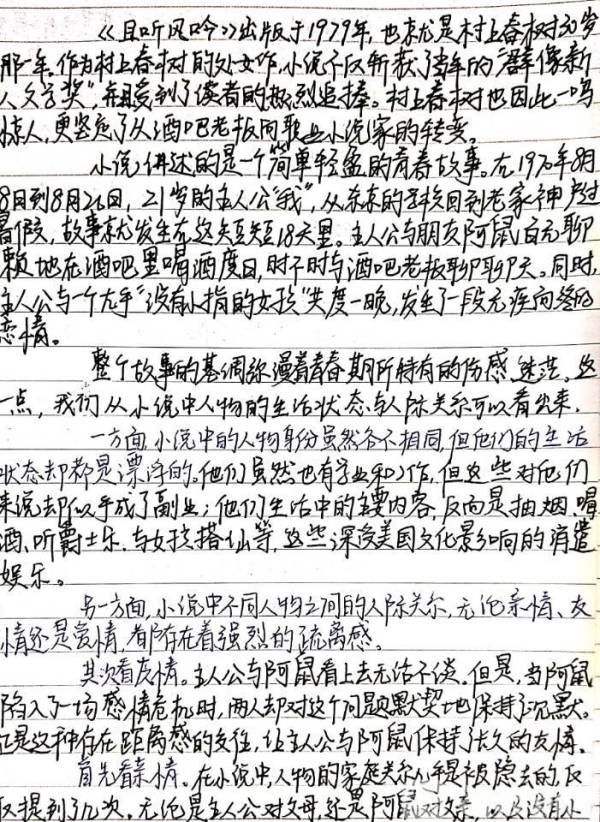 《且听风吟》出版于1979年,也就是村上春树30岁
那一年。作为村上春树的处女作,小说不仅斩获了当年的“群像新
人文学奖”,并且受到了读者的热烈追捧。村上春树也因此一鸣
惊人,更坚定了从酒吧老板向职业小说家的转变。
小说讲述的是一个简单轻盈的青春故事。在1970年8月
8日到8月26日,21岁的主人公“我”,从东京的学校回到老家神户过
暑假,故事就发生在这短短18天里。主人公与朋友阿鼠百无聊
赖地在酒吧里喝酒度日,时不时与酒吧老板聊聊天。同时,
主人公与一个左手“没有小指的女孩”共度一晚,发生了一段无疾而终的
恋情。
整个故事的基调弥漫着青春期所特有的伤感、迷茫。这
一点,我们从小说中人物的生活状态与人际关系可以看出来。
一方面,小说中的人物身份虽然各不相同,但他们的生活
状态却都是漂浮的。他们虽然也有学业和工作,但这些对他们
来说却似乎成了副业;他们生活中的主要内容,反而是抽烟、喝
酒、听爵士乐、与女孩搭讪等,这些深受美国文化影响的消遣
娱乐。
另一方面,小说中不同人物之间的人际关系,无论亲情、友
情还是爱情,都存在着强烈的疏离感。
其次看友情。主人公与阿鼠看上去无话不谈。但是,当阿鼠
陷入了一场感情危机时,两人却对这个问题默契地保持了沉默。
正是这种存在距离感的交往,让主人公与阿鼠保持了长久的友情。
首先看亲情。在小说中,人物的家庭关系几乎是被隐去的,仅
仅提到了几次。无论是主人公对父母,还是阿鼠对父亲,以及没有小